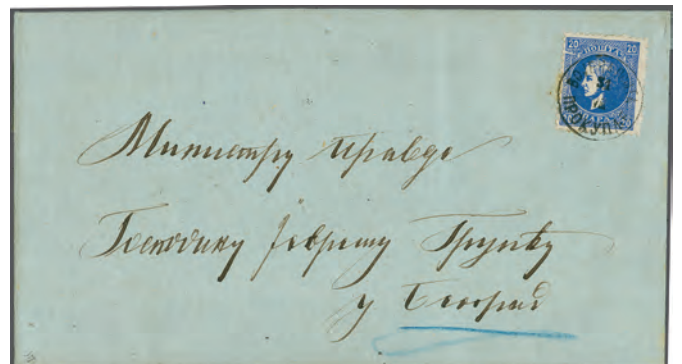 20 ПОШТА 20
ПРОКУПЉЕ
Министру Правде
Господину Јеврему Грујићу
у Београд